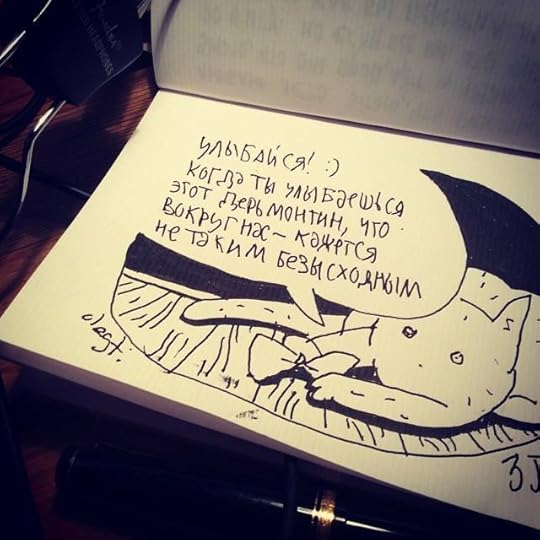 УЛЫБАЙСЯ! :)
КОГДА ТЫ УЛЫБАЕШЬСЯ
ЭТОТ ДЕРЬМОНТИН, ЧТО
ВОКРУГ НАС – КАЖЕТСЯ
НЕ ТАКИМ БЕЗЫСХОДНЫМ
olegt.